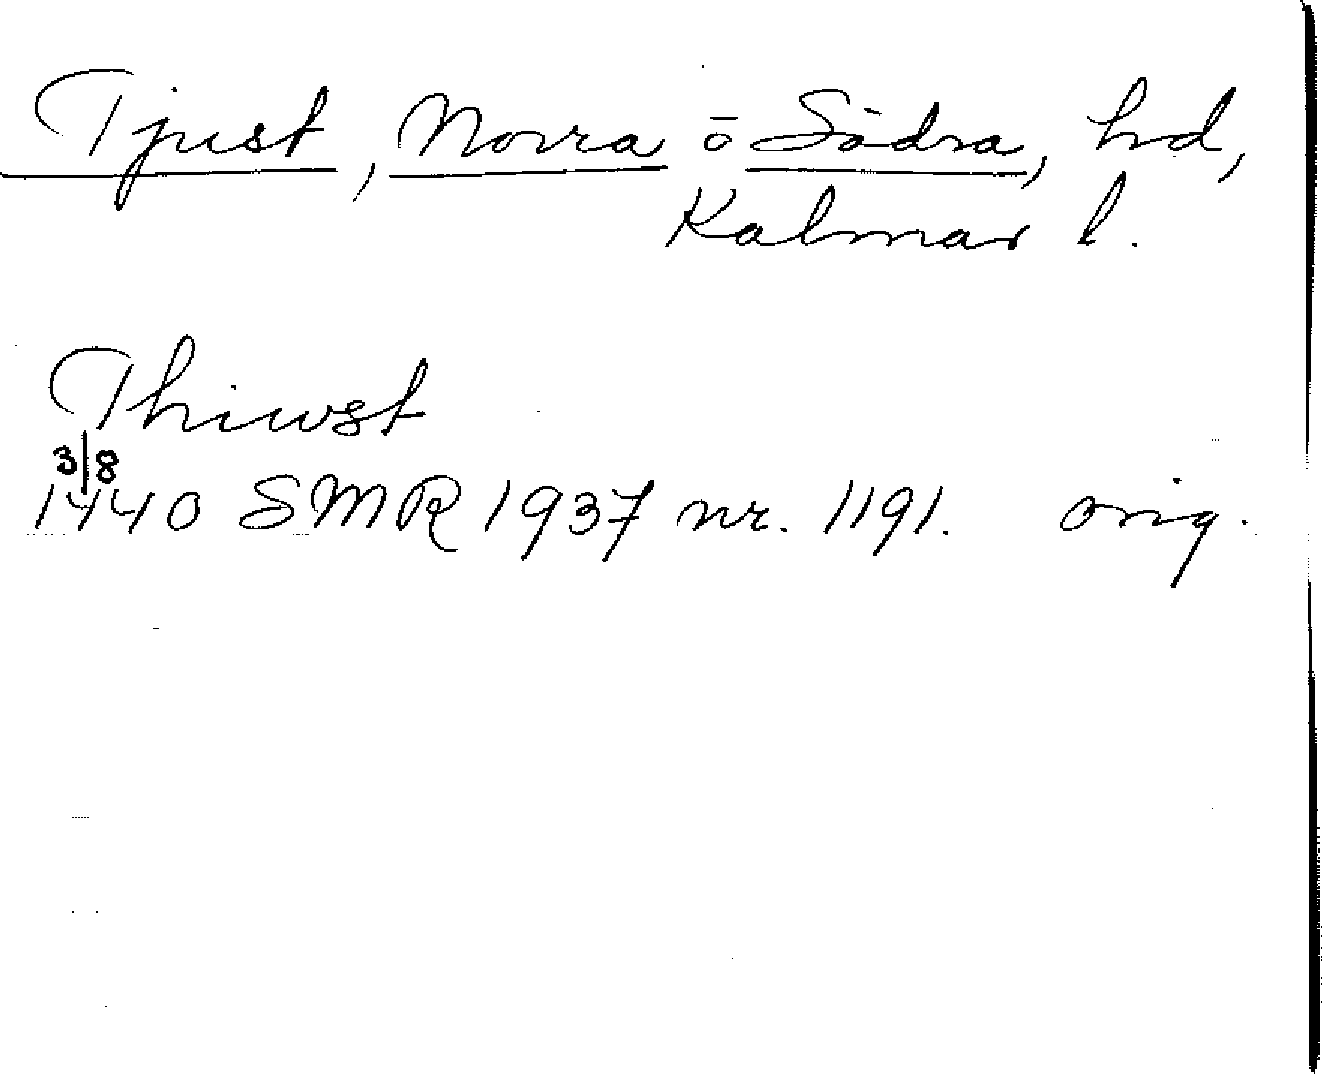 Tjust, Norra o Södra, hd,
Kalmar l.
Thiwst
3/8
1440 SMR 1937 nr. 1191. orig.